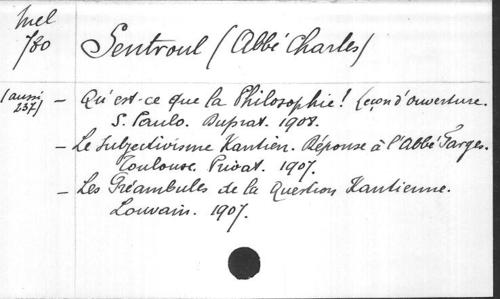 Mel
780
Sentroul (Abbé Charles)
(aussi
237)
- Qu'est-ce que la Philosophie! Leçon d'ouverture.
S. Paulo. Duprat. 1908.
- Le Subjectivisme Kantien. Réponse à l'Abbé Farges.
Toulouse. Privat. 1907.
- Les Préambules de la Question Kantienne.
Louvain. 1907.